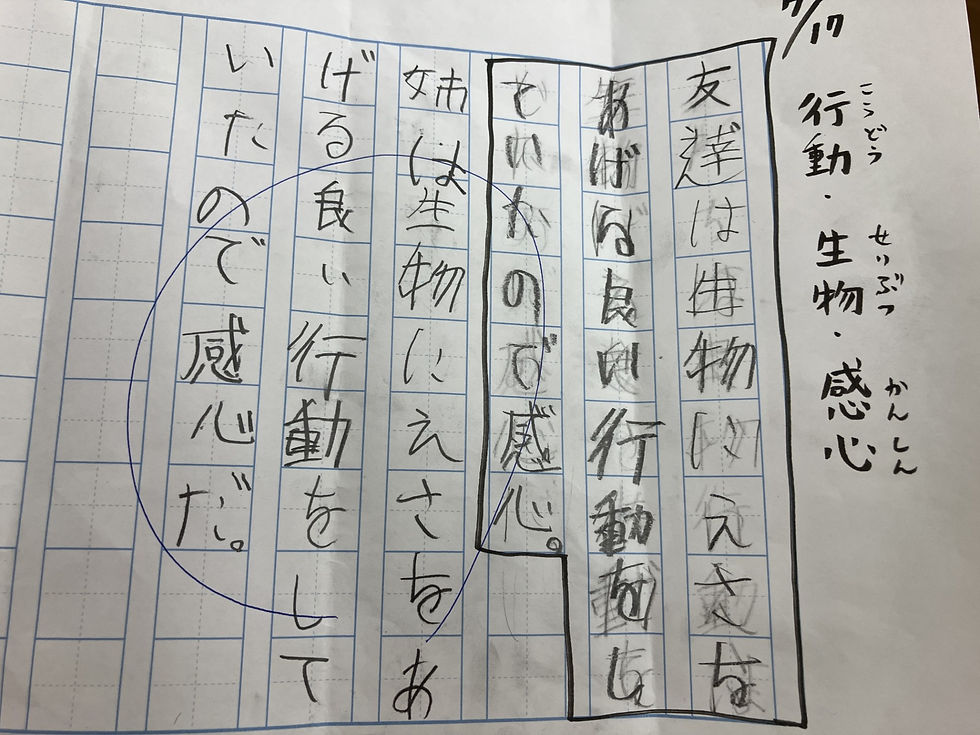 /17
こうどう せいぶつ かんしん
行動・生物・感心
友達は生物にえさを
あげる良い行動をし
ていたので感心。
姉は生物にえさをあ
げる良い行動をして
いたので感心だ。